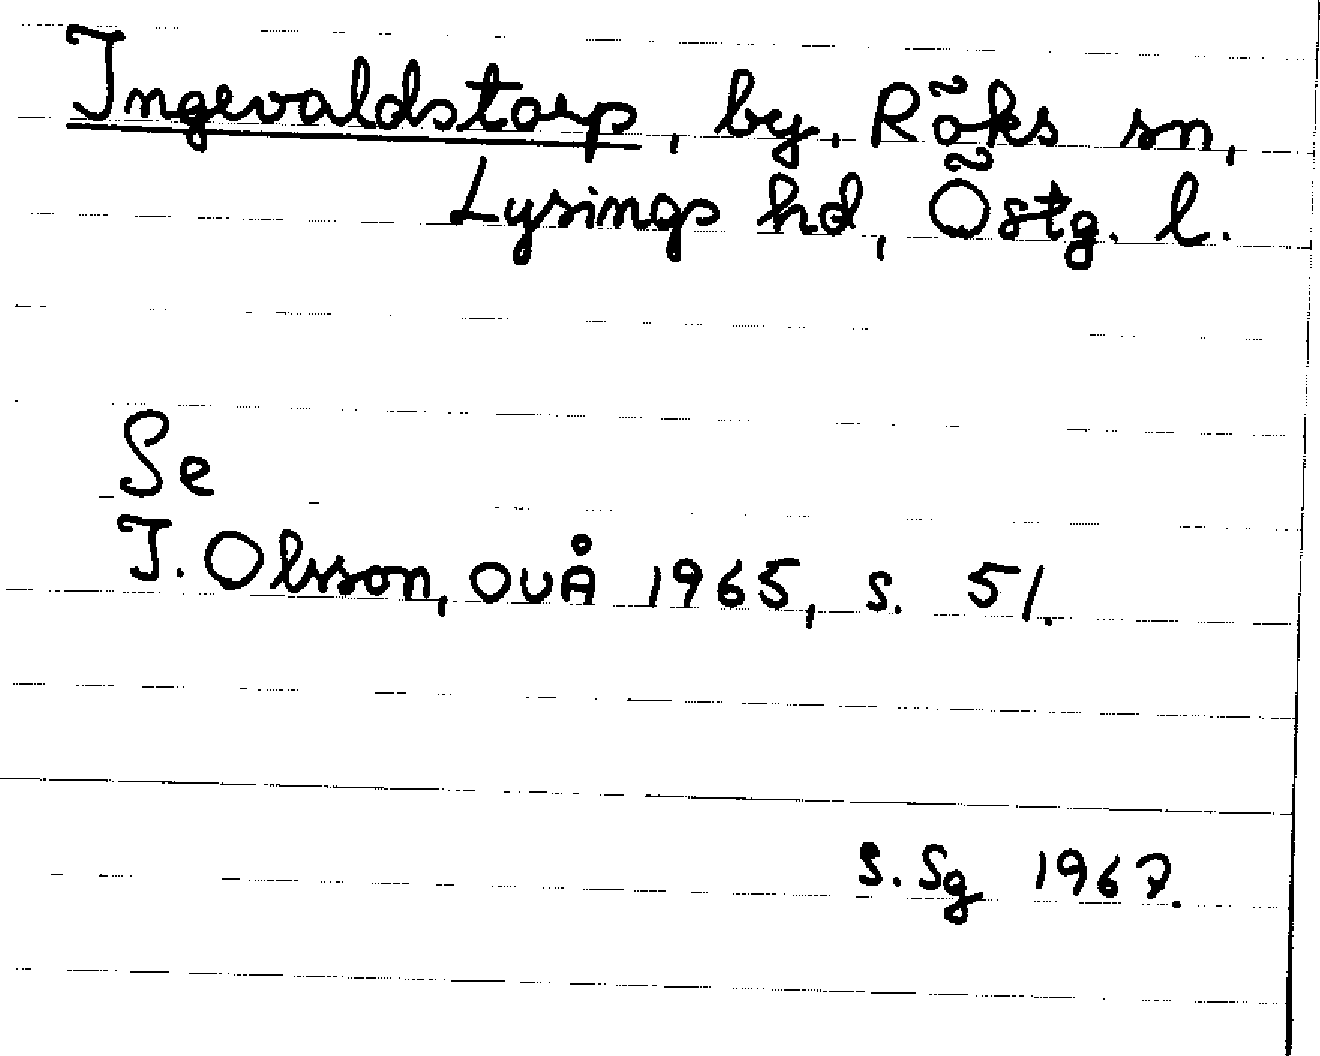 Ingevaldstorp, by, Röks sn,
Lysings hd, Östg. l.
Se
I. Olsson, OUÅ 1965, s. 51.
S. Sg 1967.